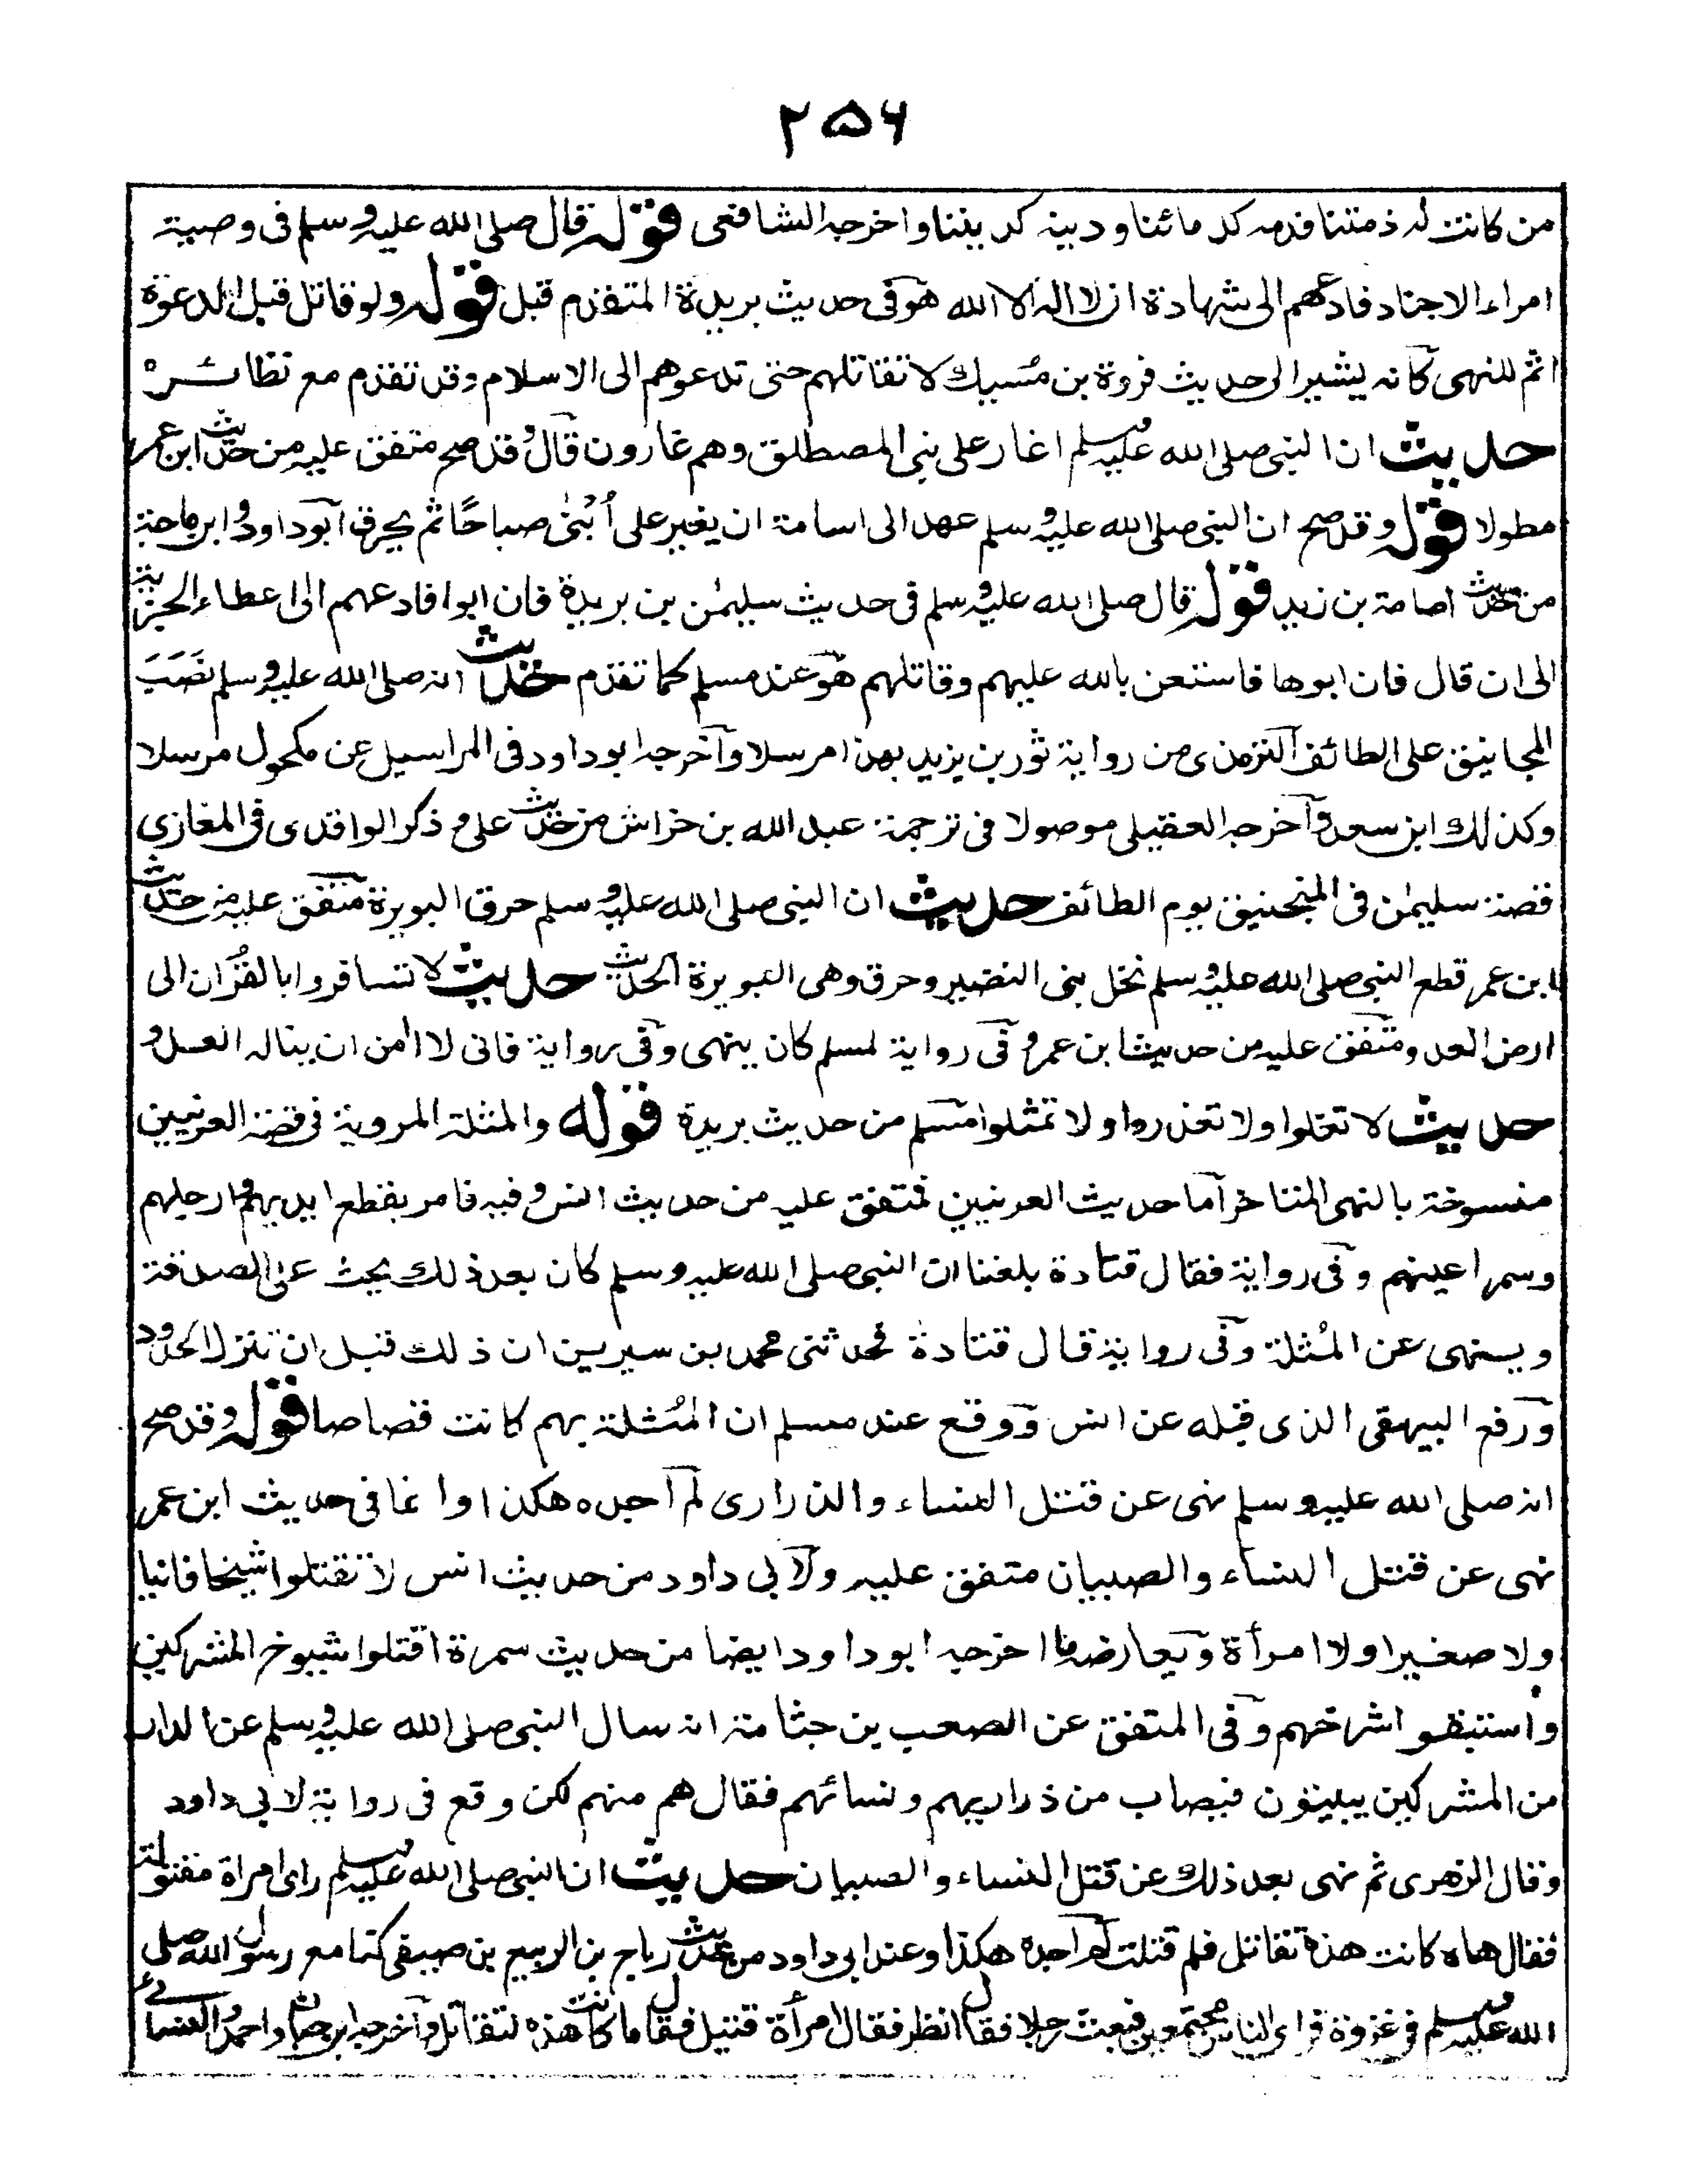 ۲۵۶
من كانت له ذمتنا فدمه كدمائنا ودينه كديننا واخرجه الشافعى قوله قال صلى الله عليه وسلم فى وصية
امراء الاجناد فادعهم الى شهادة ان لا اله الا الله هو فى حديث بريدة المتقدم قبل قوله ولو قاتل قبل الدعوة
اثم للنهى كانه يشير الى حديث فروة بن مُسيك لا تقاتلهم حتى تدعوهم الى الاسلام وقد تقدم مع نظائره
حديث ان النبى صلى الله عليه وسلم اغار على بنى المصطلق وهم غارون قال وقد صح متفق عليه من حديث ابن عمر
مطولا قوله وقد صح ان النبى صلى الله عليه وسلم عهد الى اسامة ان يغير على أُبْنٰى صباحًا ثم يحرق ابوداود وابن ماجة
من حديث اصامة بن زيد قوله قال صلى الله عليه وسلم فى حديث سليمٰن بن بريدة فان ابوا فادعهم الى اعطاء الجزية
الى ان قال فان ابوها فاستعن بالله عليهم وقاتلهم هو عند مسلم كما تقدم حديث انه صلى الله عليه وسلم نَصَبَ
المجانيق على الطائف الترمذى من رواية ثور بن يزيد بهذا مرسلا وآخرجه ابو داود فى المراسيل عن مكحول مرسلا
وكذلك ابن سعد وآخرجه العقيلى موصولا فى ترجمة عبد الله بن خراش من حديث على وذكر الواقدى فى المغازى
قصة سليمٰن فى المنجنيق يوم الطائف حديث ان النبى صلى الله عليه وسلم حرق البويرة متفق عليه من حديث
ابن عمر قطع النبى صلى الله عليه وسلم نخل بنى النضير وحرق وهى البويرة الحديث حديث لا تسافروا بالقُرْان الى
ارض العدو متفق عليه من حديث ابن عمر وفى رواية لمسلم كان ينهى وفى رواية فانى لا اٰمن ان يناله العدو
حديث لا تغلوا ولا تغدروا ولا تمثلوا مسلم من حديث بريدة قوله والمثلة المروية فى قصة العرنيين
منسوخة بالنهى المتاخر آما حديث العرنيين فمتفق عليه من حديث انس وفيه فامر بقطع ايديهم وارجلهم
وسمر اعينهم وفى رواية فقال قتادة بلغنا ان النبى صلى الله عليه وسلم كان بعد ذلك يحث على الصدقة
وينهى عن المُثلة وفى رواية قال قتادة فحدثنى محمد بن سيرين ان ذلك قبل ان تنزل الحدود
ورفع البيهقى الذى قبله عن انس ووقع عند مسلم ان المُثلة بهم كانت قصاصا قوله وقد صح
انه صلى الله عليه وسلم نهى عن قتل النساء والذرارى لم آجده هكذا وانما فى حديث ابن عمر
نهى عن قتل النساء والصبيان متفق عليه ولابى داود من حديث انس لا تقتلوا شيخا فانيا
ولا صغيرا ولا امرأة ويعارضه ما اخرجه ابو داود ايضا من حديث سمرة اقتلوا شيوخ المشركين
واستبقوا شرخهم وفى المتفق عن الصعب بن جثامة انه سال النبى صلى الله عليه وسلم عن الدار
من المشركين يبيتون فيصاب من ذراريهم ونسائهم فقال هم منهم لكن وقع فى رواية لابى داود
وقال الزهرى ثم نهى بعد ذلك عن قتل النساء والصبيان حديث ان النبى صلى الله عليه وسلم راى امراة مقتولة
فقال هاه كانت هذه تقاتل فلم قتلت لم اجده هكذا وعند ابى داود من حديث رباح بن الربيع بن صيفى كنا مع رسول الله صلى
الله عليه وسلم فى غزوة فراى الناس مجتمعين فبعث رجلا فقال انظر فقال امرأة قتيل فقال ما كانت هذه لتقاتل وآخرجه ابن حبان واحمد والنسائى